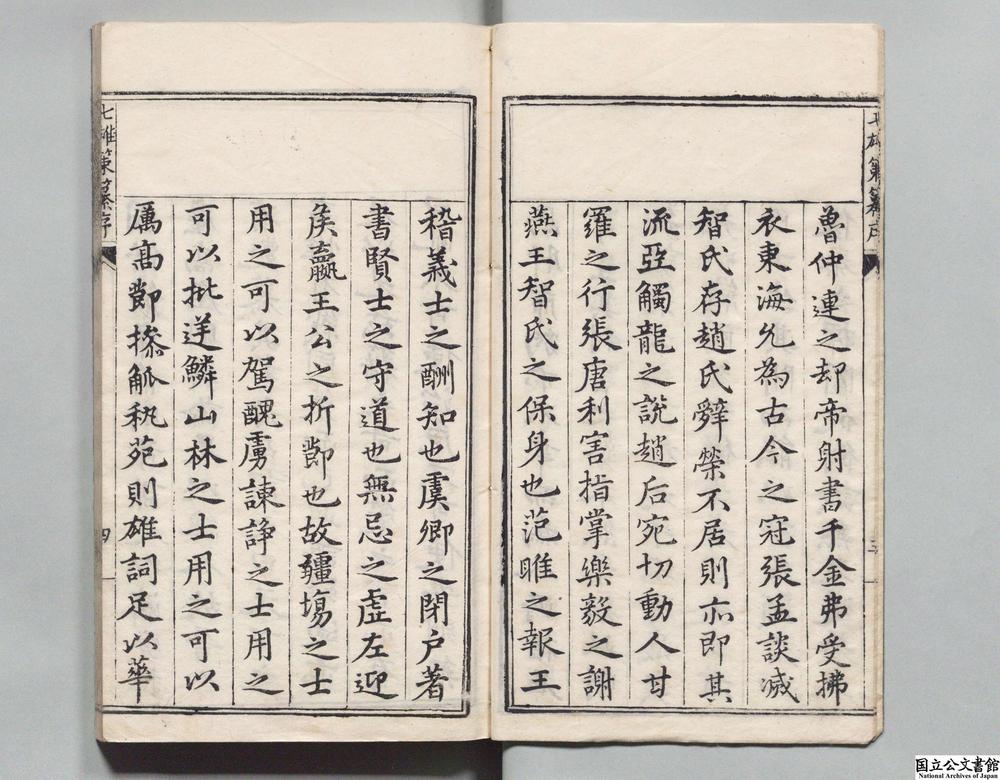 七雄策纂序
魯仲連之却帝射書千金弗受拂
衣東海允為古今之冠張孟談滅
智氏存趙氏辤榮不居則亦即其
流亞觸龍之說趙后宛切動人甘
羅之行張唐利害指掌樂毅之謝
燕王智氏之保身也范睢之報王
三
七雄策纂序
稽義士之酬知也虞卿之閉户著
書賢士之守道也無忌之虛左迎
矦嬴王公之折莭也故疆塲之士
用之可以駕醜虜諫諍之士用之
可以批逆鱗山林之士用之可以
厲髙莭摻觚秇苑則雄詞足以華
四
国立公文書館
National Archives of Japan